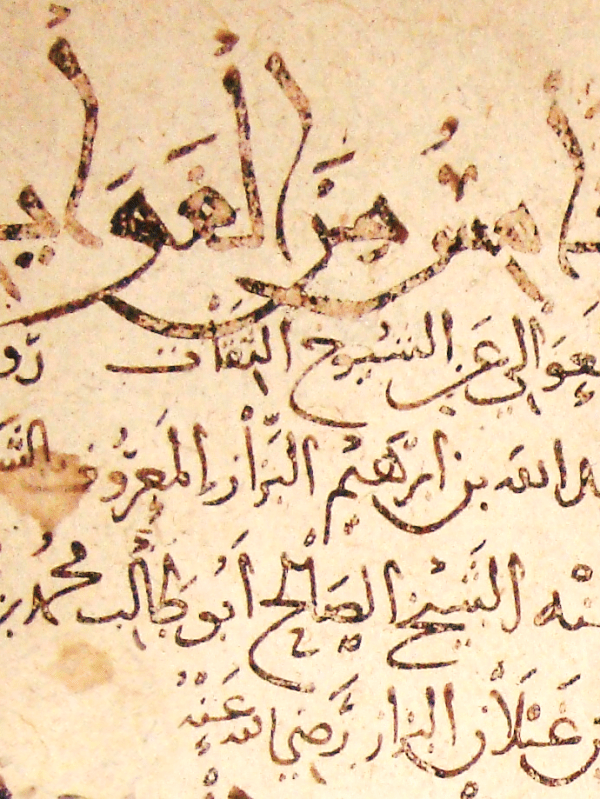 من الفوا
العوالي عن الشيوخ الثقات
عبد الله بن ابرهيم البزاز المعروف بالش
عنه الشيخ الصالح أبو طالب محمد بن
بن غيلان البزاز رضي الله عنه